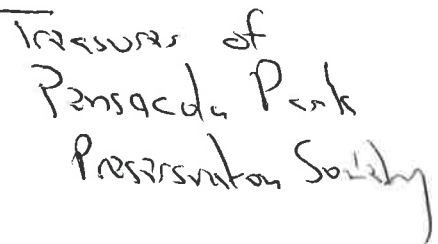 Treasures of
Pensacola Park
Preserzvation Society